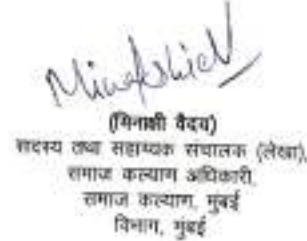 (मिनाक्षी वैदय)
सदस्य तथा सहाय्यक संचालक (लेखा),
समाज कल्याण अधिकारी,
समाज कल्याण, मुंबई
विभाग, मुंबई